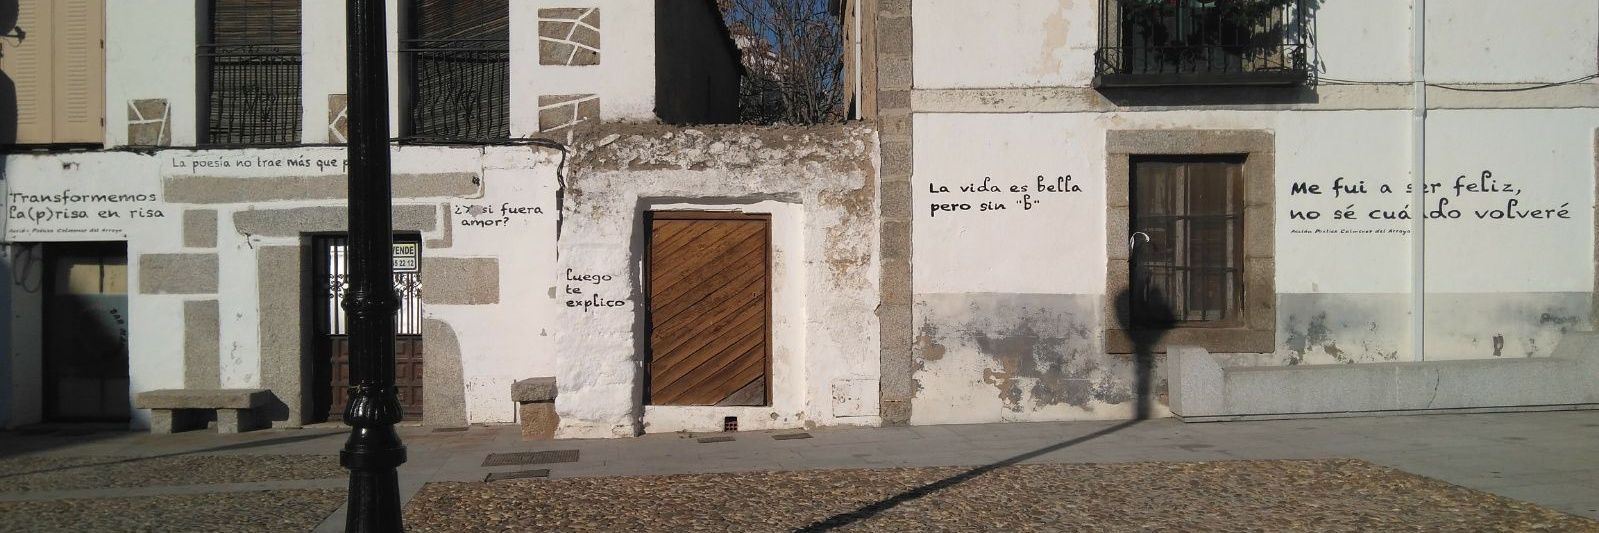 La poesía no trae más que
Transformemos
la(p)risa en risa
Acción Poética Colmenar del Arroyo
¿Y si fuera
amor?
VENDE
luego
te
explico
La vida es bella
pero sin "b"
Me fui a ser feliz,
no sé cuándo volveré
Acción Poética Colmenar del Arroyo